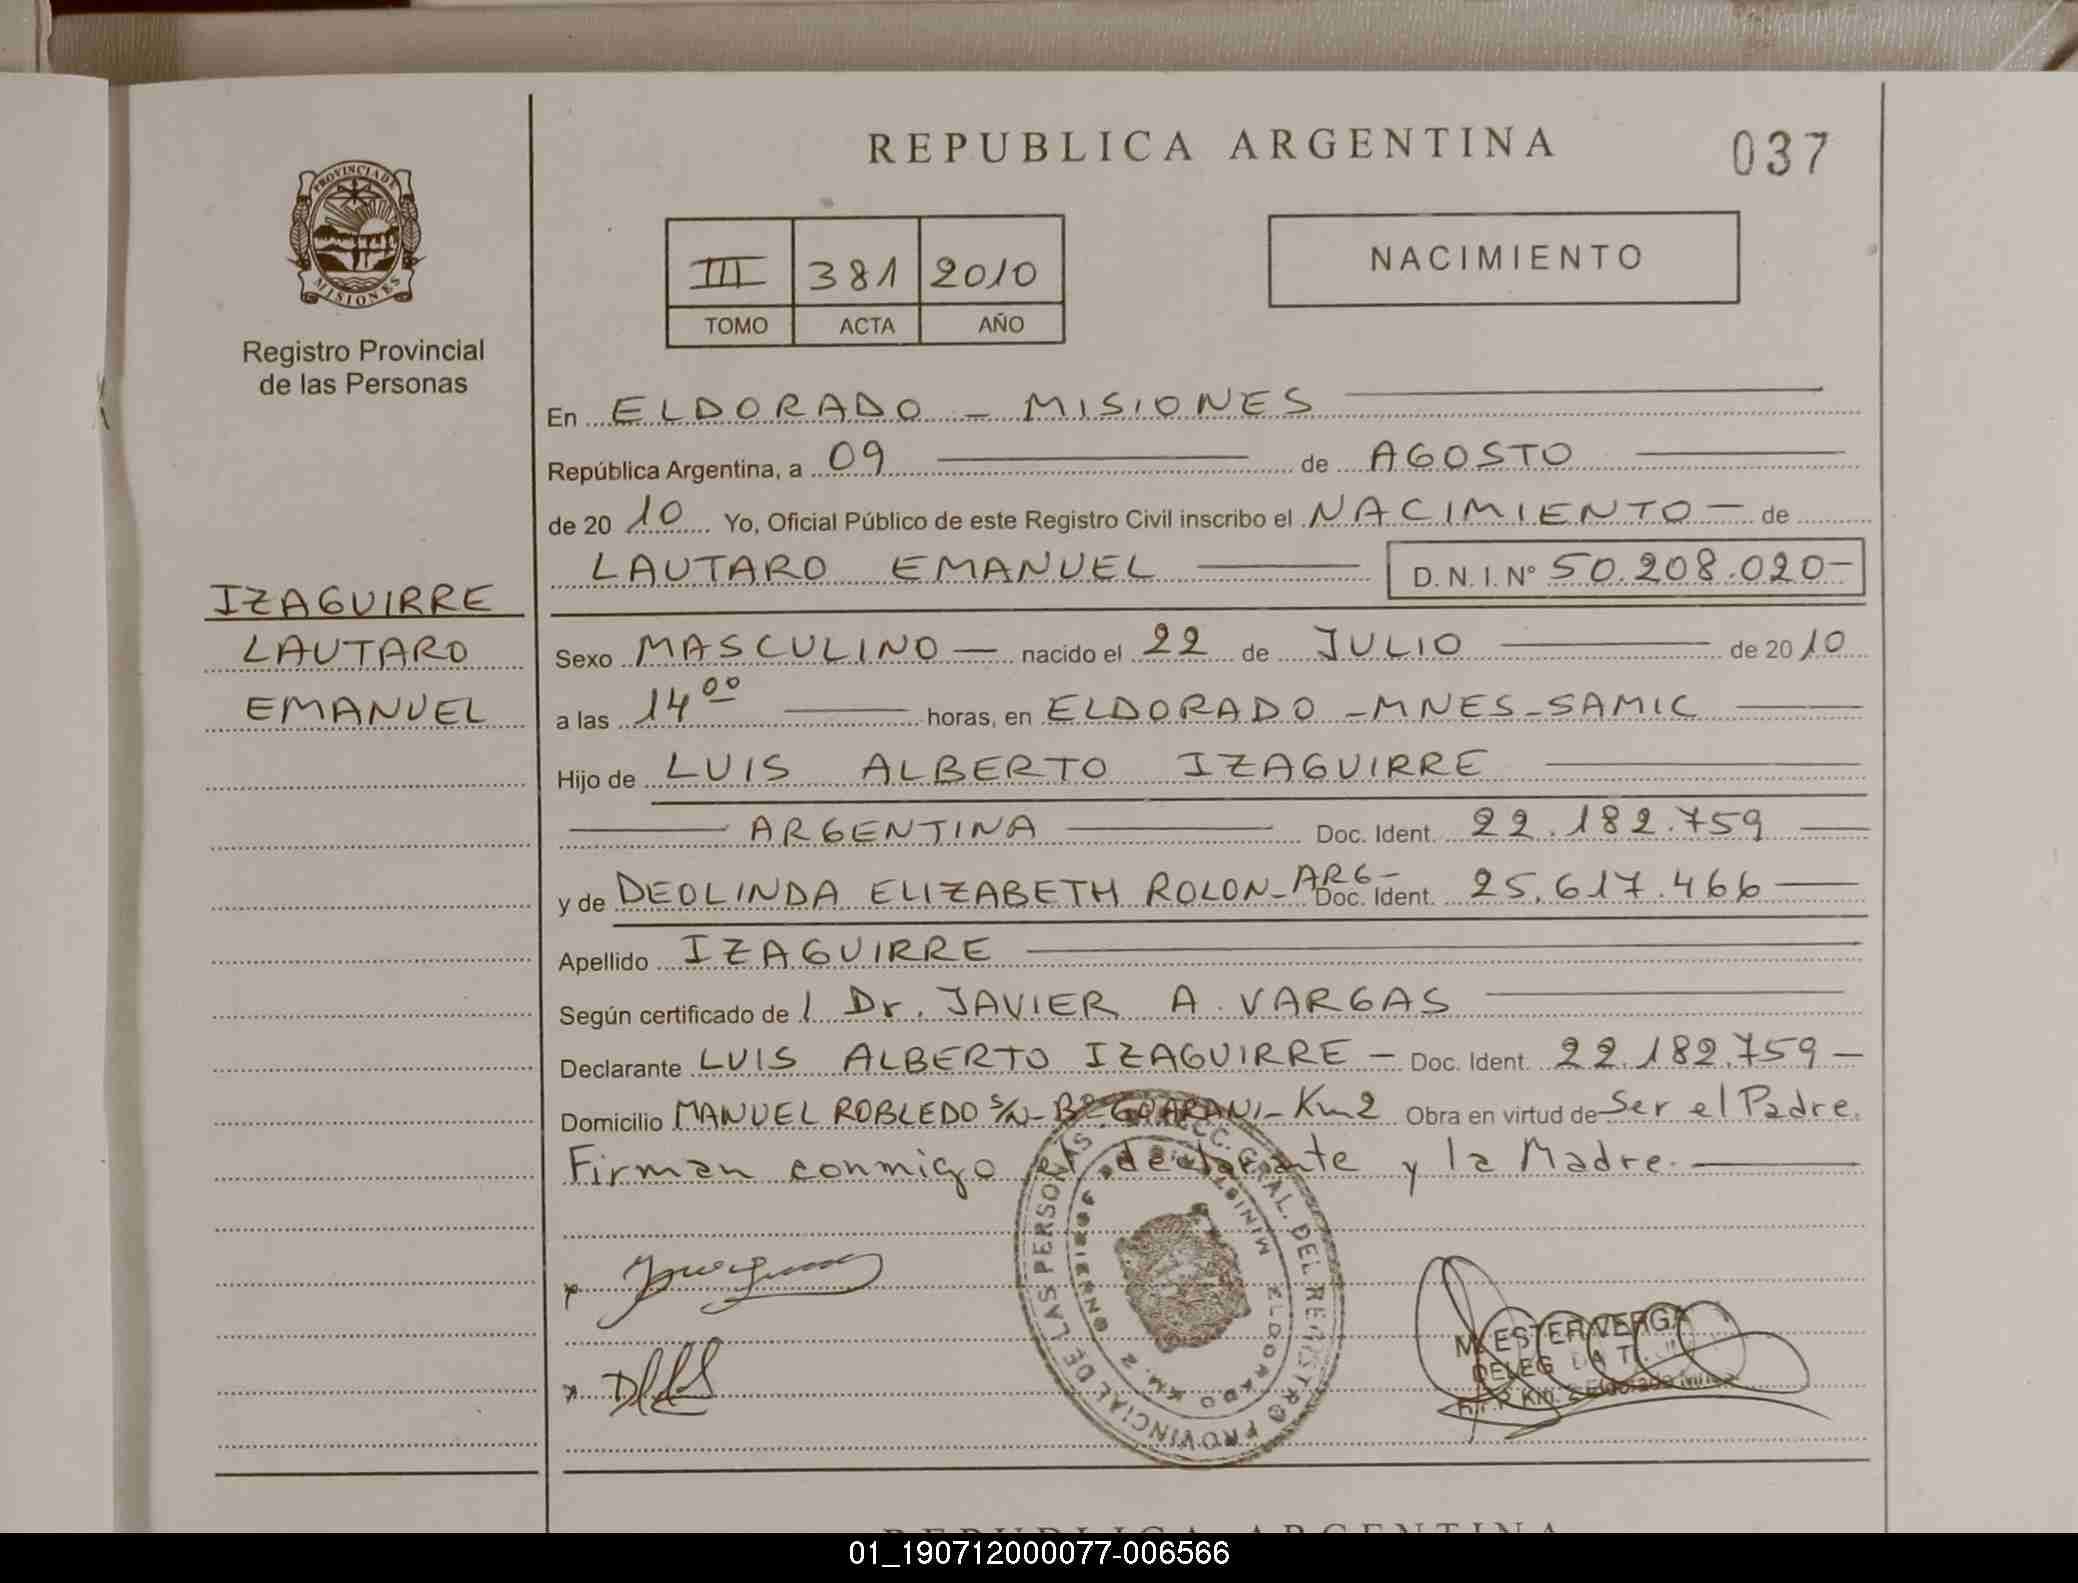 REPUBLICA ARGENTINA
037
PROVINCIA DE
MISIONES
Registro Provincial
de las Personas
III 381 2010
TOMO ACTA AÑO
NACIMIENTO
En ELDORADO - MISIONES
República Argentina, a 09 de AGOSTO
de 2010 Yo, Oficial Público de este Registro Civil inscribo el NACIMIENTO - de
LAUTARO EMANUEL D.N.I. Nº 50.208.020-
IZAGUIRRE
LAUTARO
EMANUEL
Sexo MASCULINO - nacido el 22 de JULIO de 2010
a las 14 00 horas, en ELDORADO - MNES - SAMIC
Hijo de LUIS ALBERTO IZAGUIRRE
ARGENTINA Doc. Ident. 22.182.759
y de DEOLINDA ELIZABETH ROLON - ARG - Doc. Ident. 25.617.466
Apellido IZAGUIRRE
Según certificado de / Dr. JAVIER A. VARGAS
Declarante LUIS ALBERTO IZAGUIRRE - Doc. Ident. 22.182.759 -
Domicilio MANUEL ROBLEDO S/N - Bº GUARANI - Km 2 Obra en virtud de Ser el Padre.
Firman conmigo el declarante y la Madre.
DIRECC. GRAL. DEL REGISTRO PROVINCIAL DE LAS PERSONAS
MINISTERIO DE GOBIERNO
ELDORADO KM. 2
M. ESTER VERGA
DELEG
Km. 2 Eldorado
REPUBLICA ARGENTINA
01_190712000077-006566